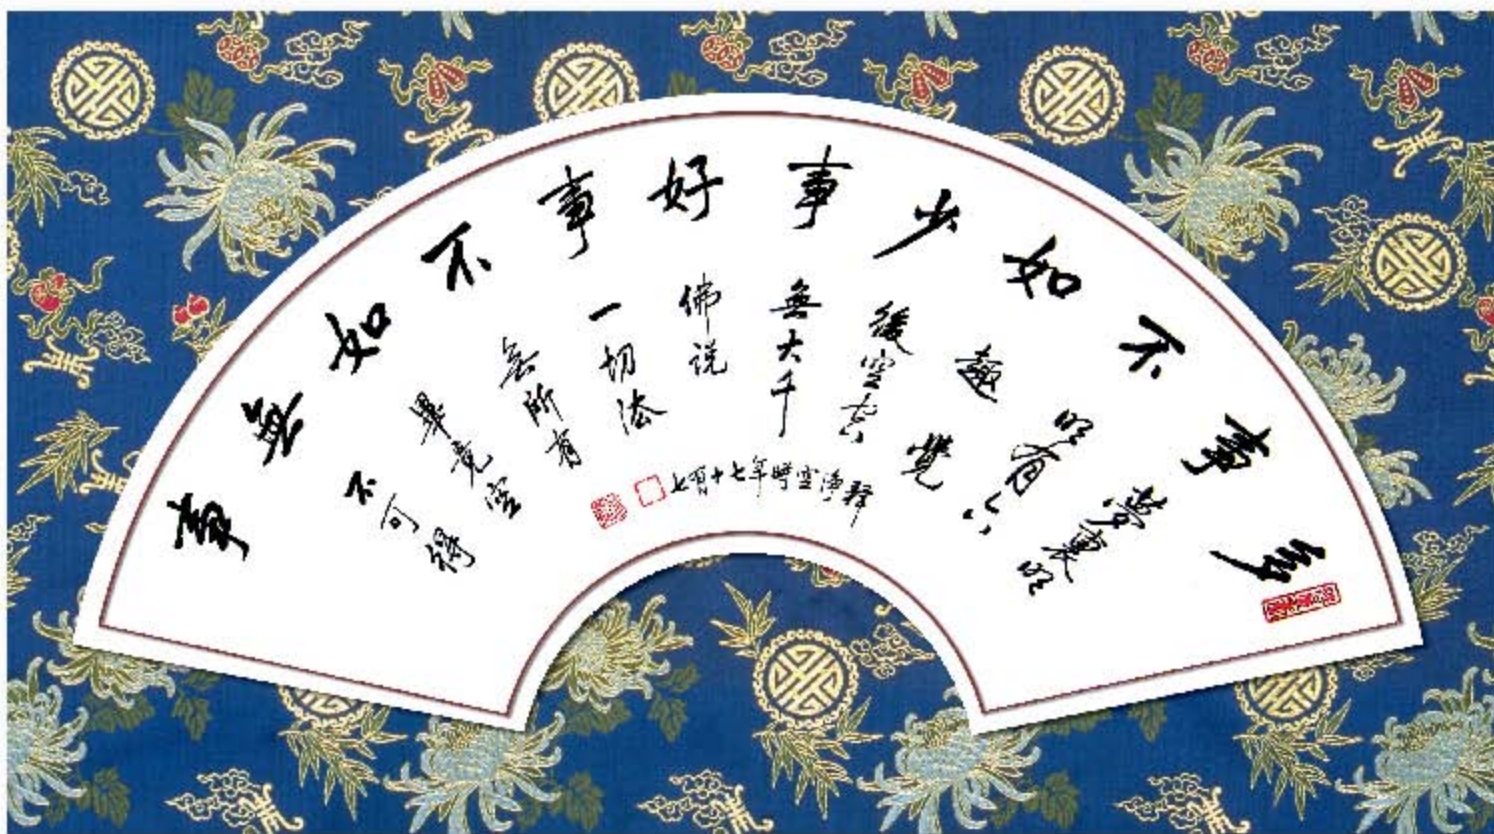 多事不如少事好事不如無事
夢裏明
明有六
趣覺
後空空
無大千
佛說
一切法
無所有
畢竟空
不可得
釋淨空時年七十有七